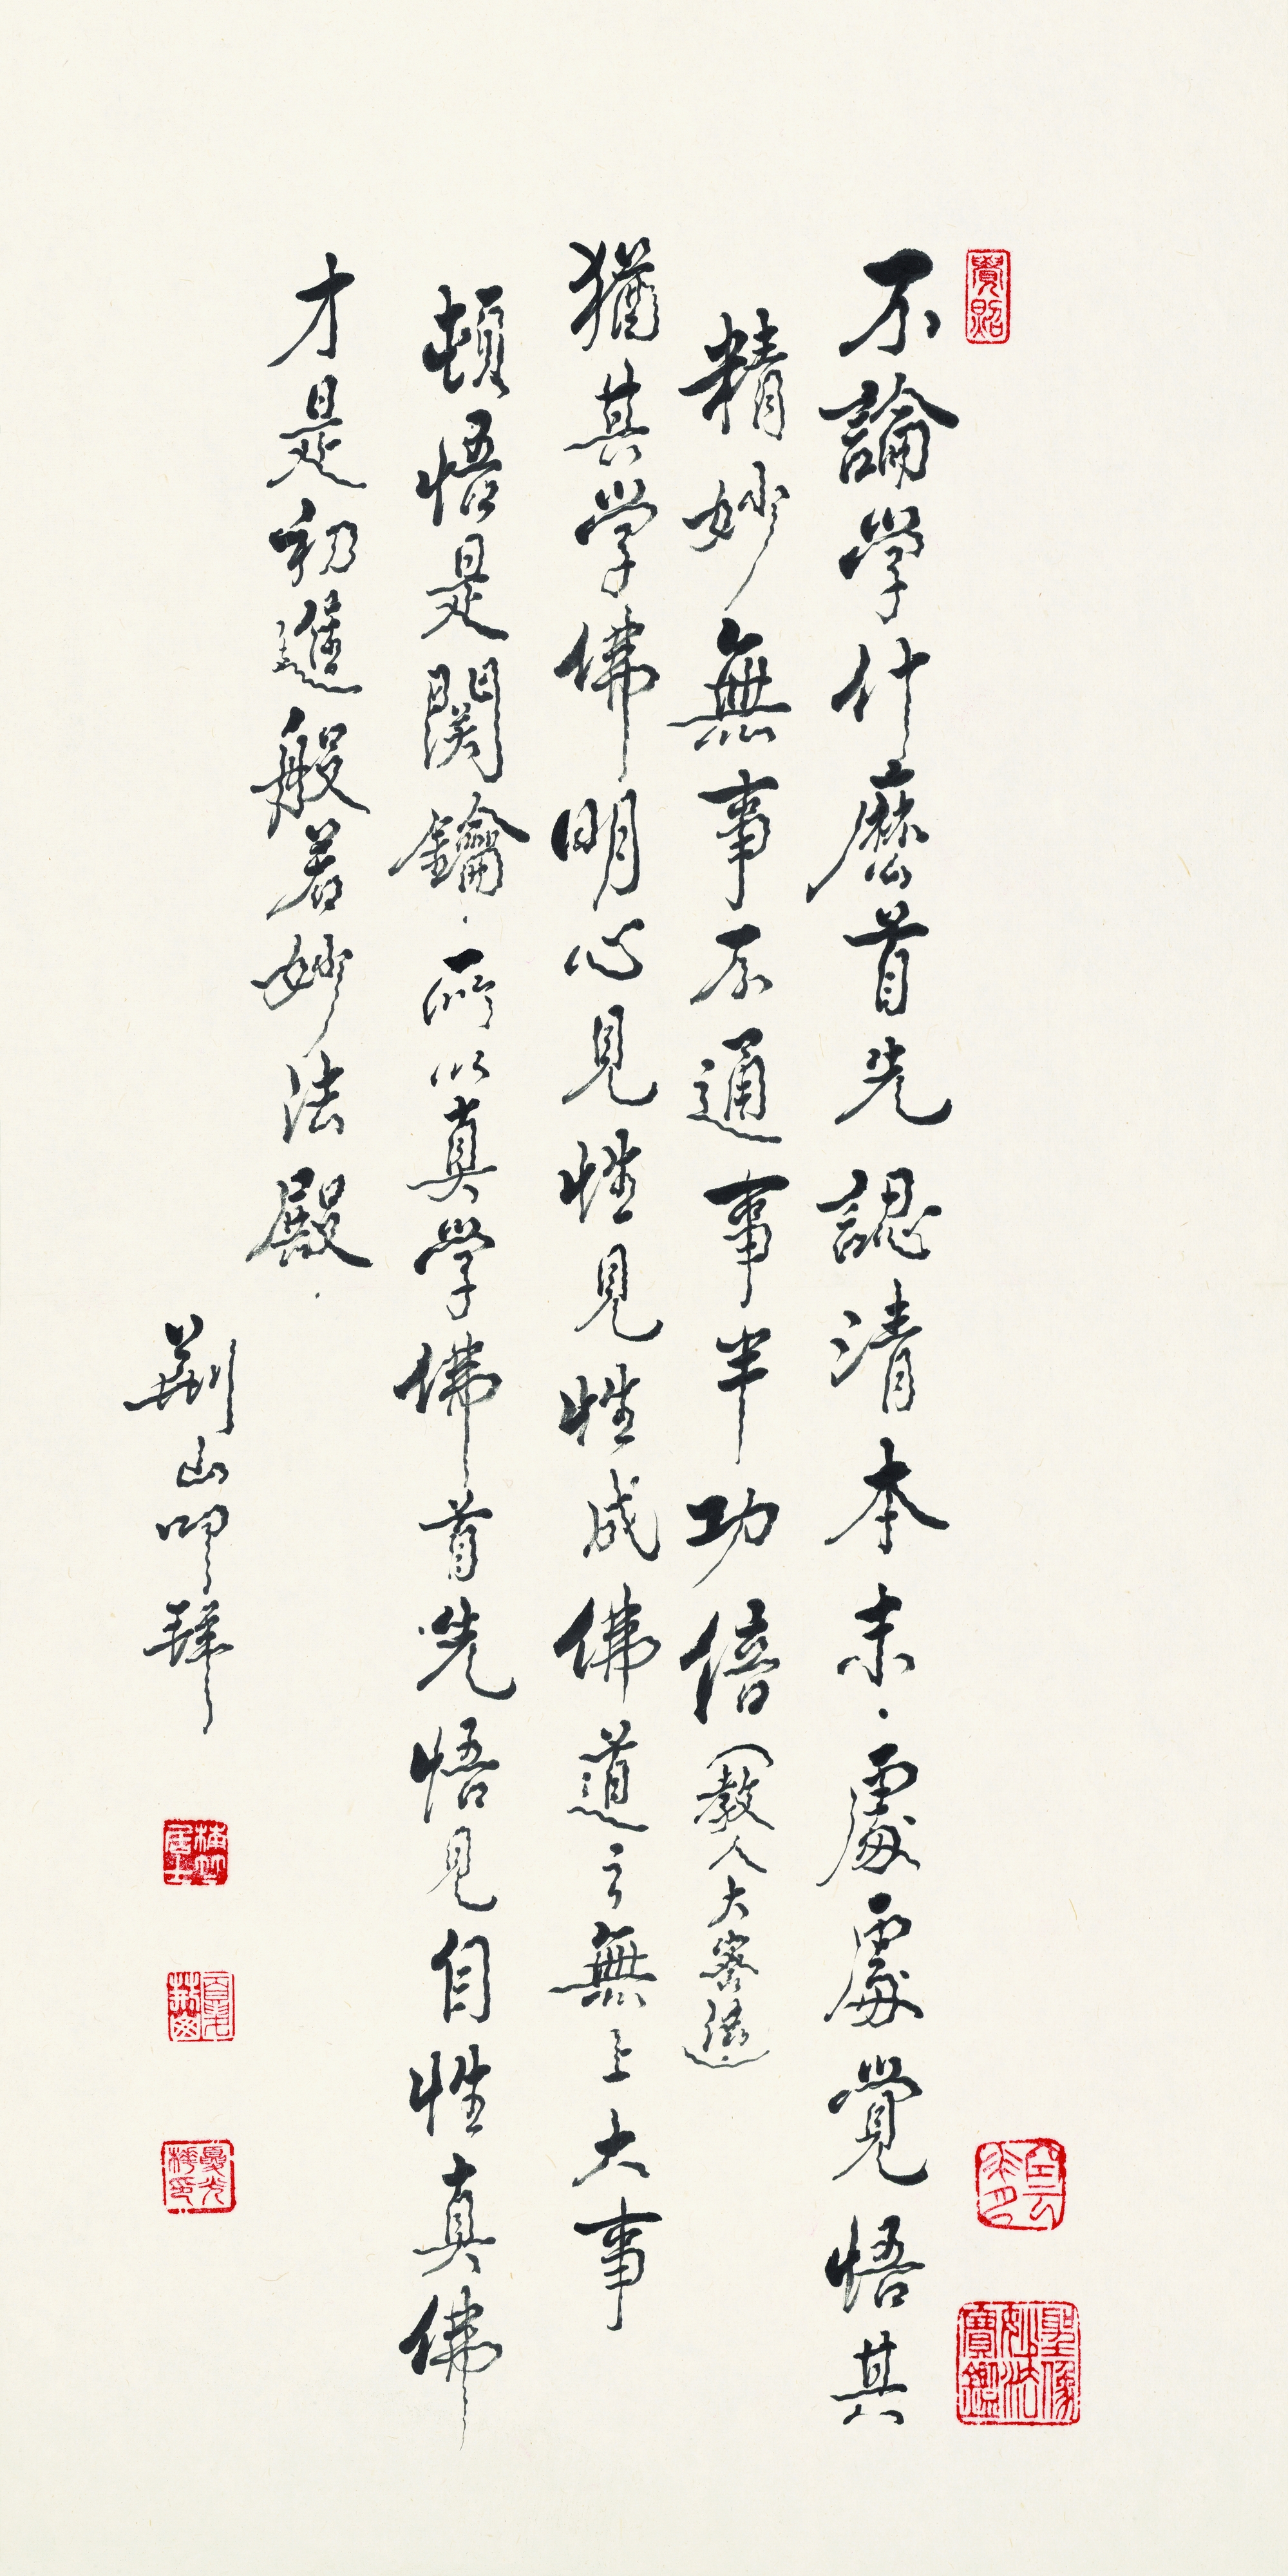 不論學什麼首先認清本末．處處覺悟其
精妙無事不通事半功倍（教人大密
猶其学佛明心見性見性成佛道之無上大事
頓悟是関鑰．所以真學佛首先悟見自性真佛
才是初進般若妙法殿．
荆山叩拜
覺照
聖像妙法寶鑑